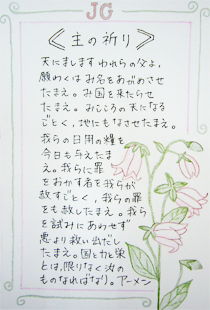 JG
≪主の祈り≫
天にましますわれらの父よ,
願わくはお名をあがめさせ
たまえ。お国を来たらせ
たまえ。みこころの天になる
ごとく,地にもなさせたまえ。
我らの日用の糧を
今日も与えたま
え。我らに罪
をおかす者を我らが
赦すごとく,我らの罪
をも赦したまえ。我ら
を試みにあわせず
悪より救い出だし
たまえ。国と力と栄
とは,限りなく汝の
ものなればなり。アーメン